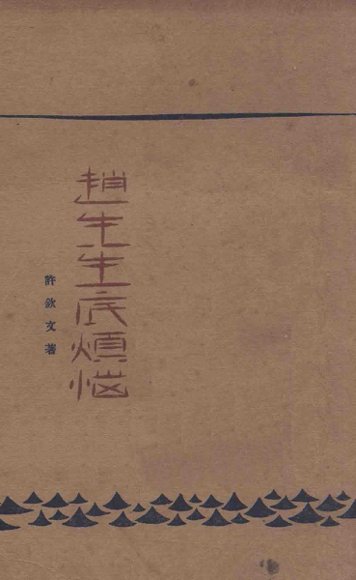 趙先生底煩惱
許欽文著